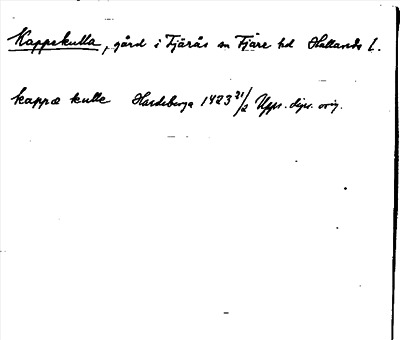 Kappekulla, gård i Fjärås sn Fjäre hd Hallands l.
kappæ kulle Hardeberga 1423 21/2 Upps. dipl. orig.